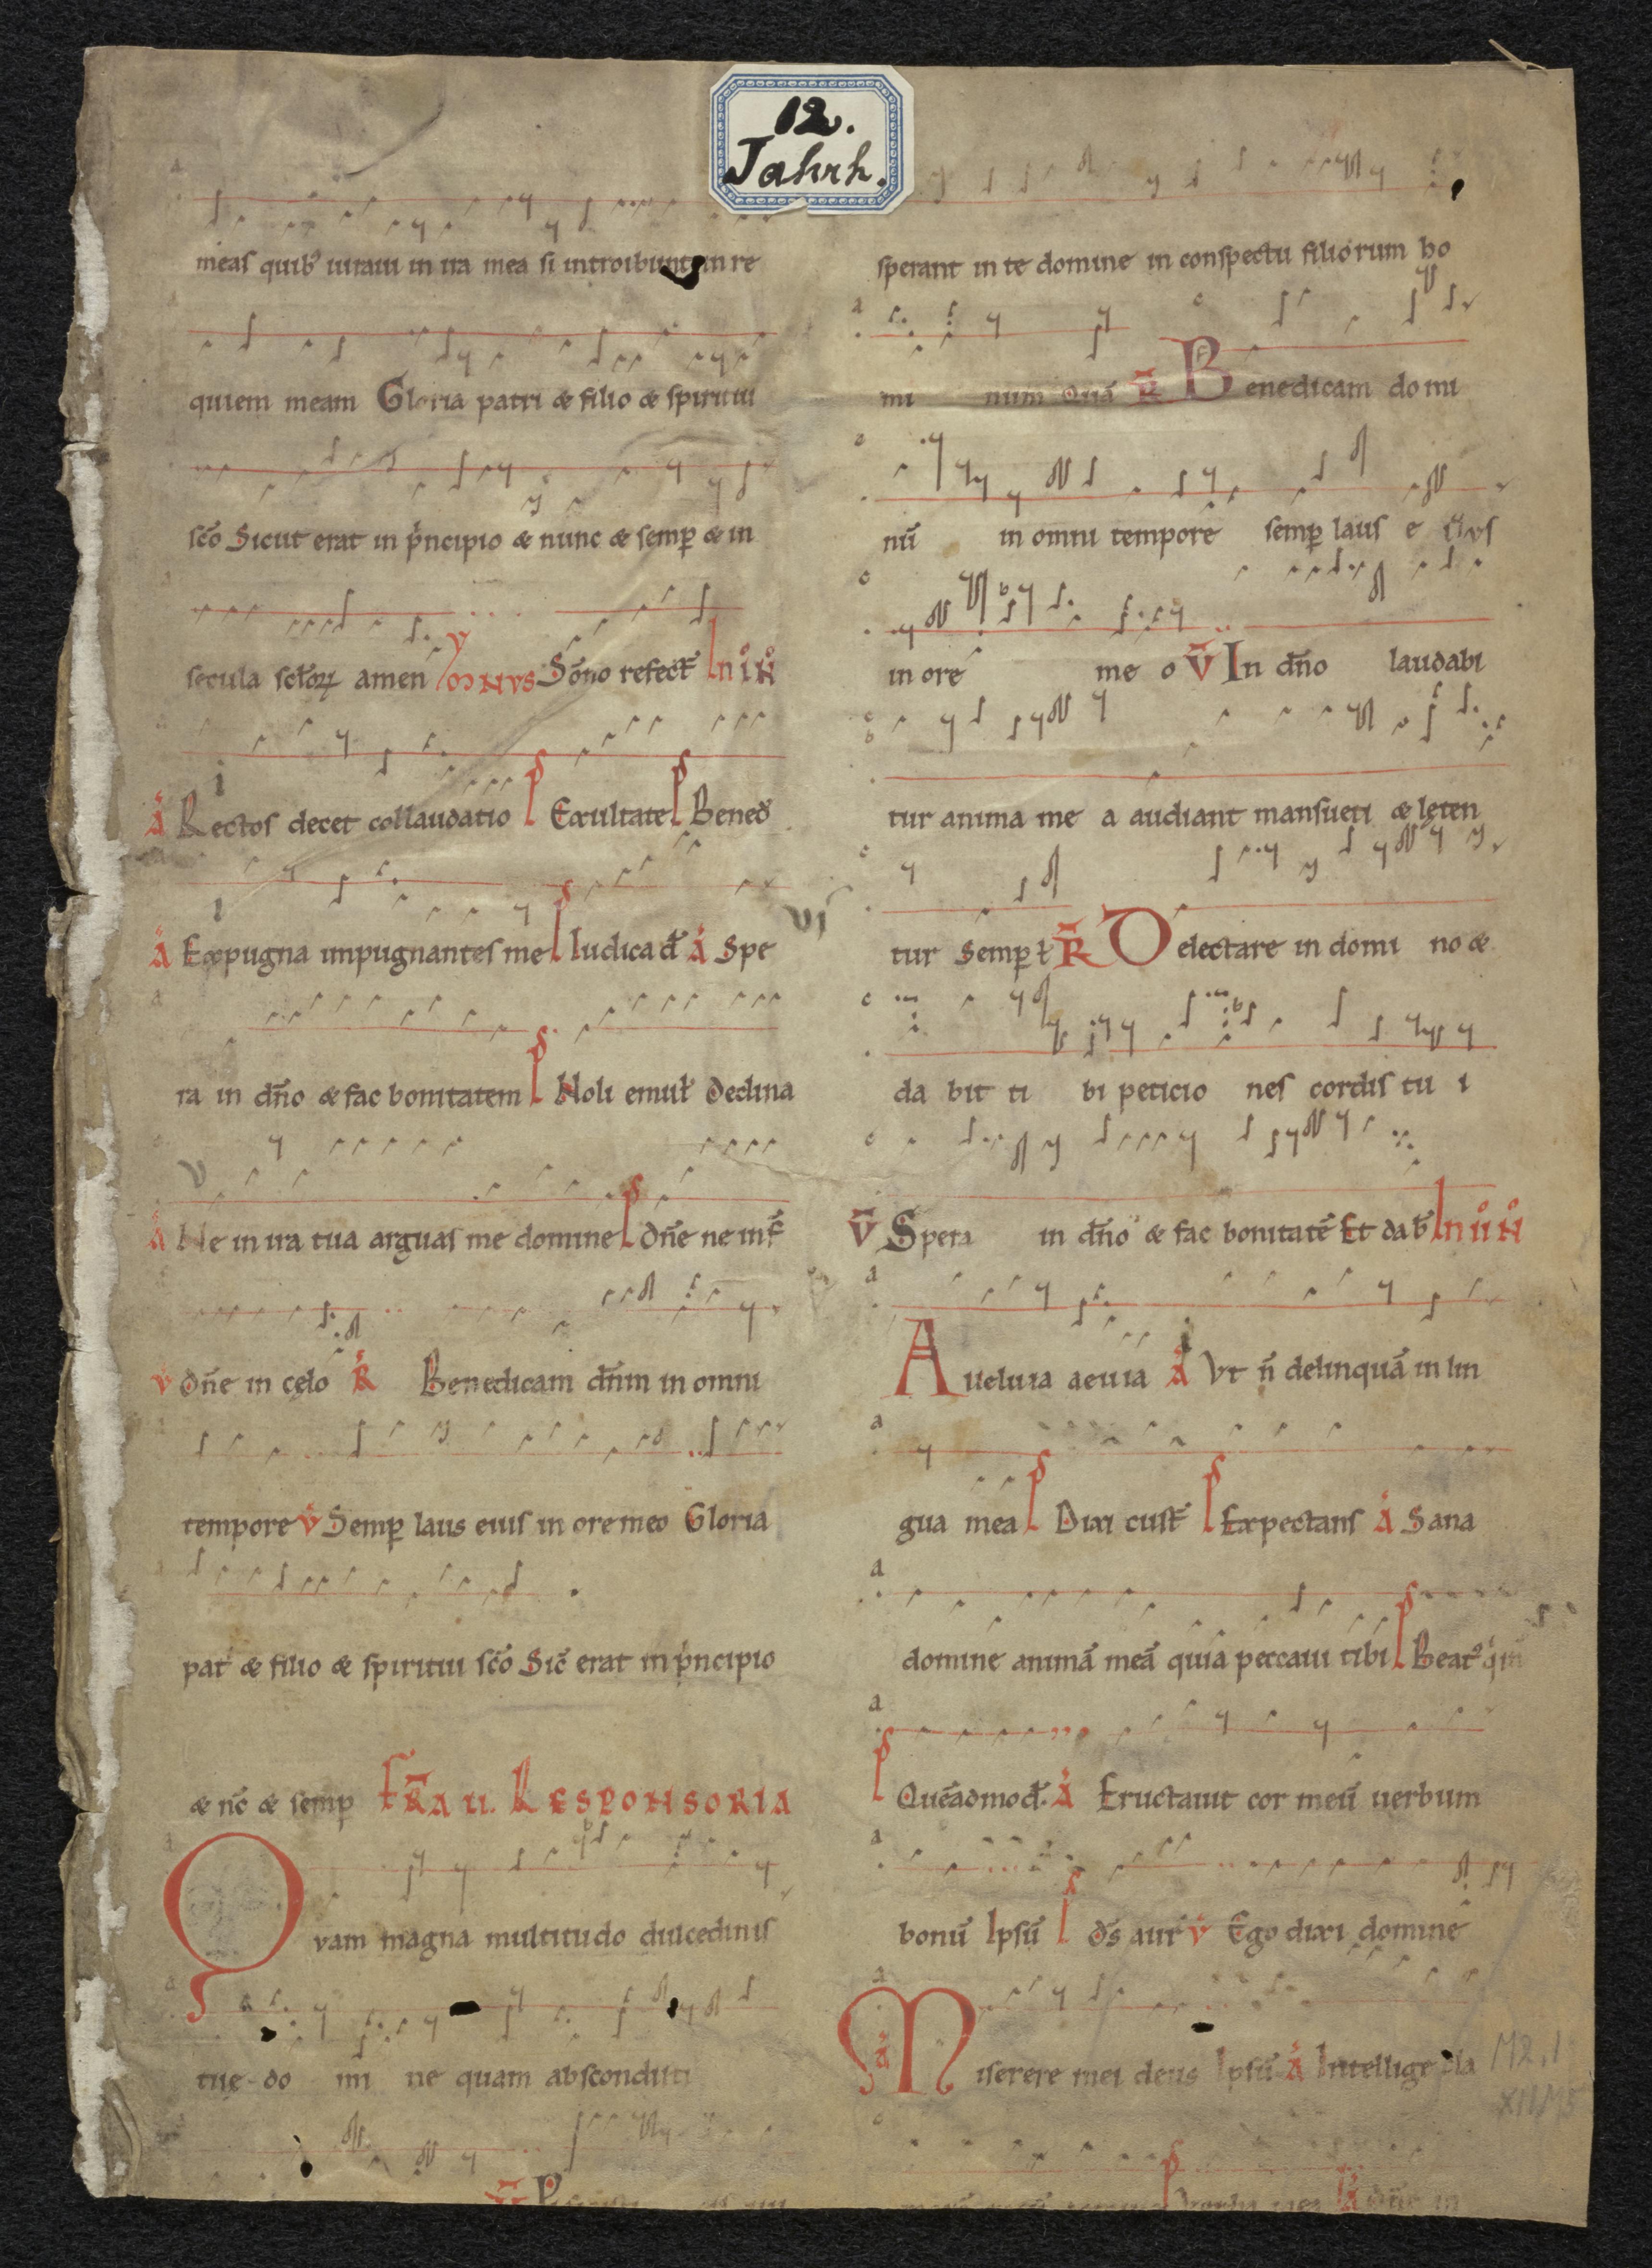 12.
Jahrh.
meas quib' iuraui in ira mea si introibunt in re
quiem meam Gloria patri & filio & spiritui
sc̄o Sicut erat in p̍ncipio & nunc & semꝑ & in
secula sc̄loꝝ amen ymnus Sōno refect̄ In i Ν̊
A̍ Rectos decet collaudatio ps Exultate ps Bened̄
A̍ Expugna impugnantes me ps Iudica d̄ A̍ Spe
ra in dn̄o & fac bonitatem ps Noli emul̄ Declina
A̍ Ne in ira tua arguas me domine ps Dn̄e ne in f̄
v̍ Dn̄e in cęlo R̍ Benedicam dn̄m in omni
tempore v̍ Semꝑ laus eius in ore meo Gloria
pat̍ & filio & spiritui sc̄o Sic̄ erat in p̍ncipio
& nc̄ & semꝑ RESPONSORIA
Quam magna multitudo dulcedinis
tuę do mi ne quam absconditi
sperant in te domine in conspectu filiorum ho
mi num Quā R̄ Benedicam domi
nū in omni tempore semꝑ laus e ius
in ore me o V̄ In dn̄o laudabi
tur anima me a audiant mansueti & lęten
VI
tur Semꝑ ł R̄ Delectare in domi no &
da bit ti bi peticio nes cordis tu i
V̄ Spera in dn̄o & fac bonitatē Et dab̄ In ii Ν̊
Aueluia aeuia A̍ Vt n̄ delinquā in lin
gua mea ps Dixi cust̄ ps Expectans A̍ Sana
domine animā meā quia peccaui tibi ps Beat' q̍ in
ps Quēadmod̄. A̍ Eructauit cor meū uerbum
bonū Ipsū ps Ds̄ aur̍ v̍ Ego dixi domine
A̍ Miserere mei deus Ipsū A̍ Intellige cla
M2,1